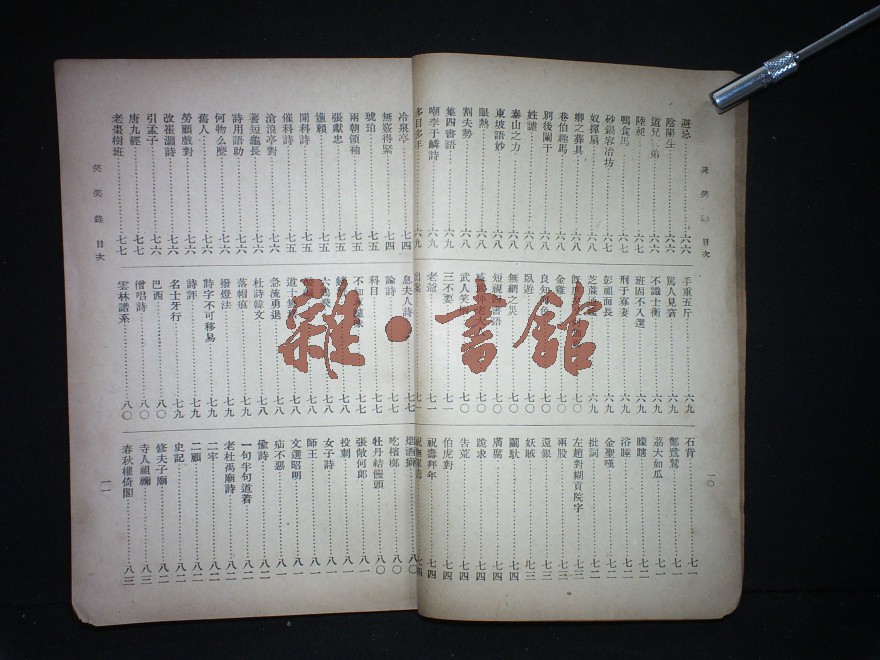 笑笑錄 目次
避忌……六六
陰陽生……六六
道兄 弟……六六
陸昶……六七
鴨食馬……六七
砂鍋容冶坊……六七
奴揮扇……六八
卿之葬具……六八
巷伯
別後闌干……六八
姓謎……六八
泰山之力……六八
東坡語妙……六八
眼熱……六八
割夫勢……六八
集四書語……六九
嘲李于鱗詩……六九
多目多手……六九
手重五斤……六九
罵人見賓……六九
不識士衡……六九
班固不入選……六九
刑于寡妻……六九
彭祖面長……六九
芝蔴
金雞……七〇
良知
臥遊……七〇
無網之災……七〇
短視四書語……七〇
武人笑……七〇
三不要……七一
老爺……七一
石背……七一
鄭鷺鷥……七一
荔大如瓜……七一
矇瞎……七二
浴睡……七二
金聖嘆……七二
批詞……七二
左趙對糊貢院字……七三
兩股……七三
還銀……七三
妖賊……七三
圝馱……七四
膺腐……七四
跪求……七四
告荒……七四
伯虎對……七四
祝壽拜年……七四
一〇
冷泉亭……七四
無簽得緊……七四
琥珀……七五
兩朝領袖……七五
張獻忠……七五
遠賴……七五
開科詩……七五
催科詩……七五
滄浪亭對……七六
著短龜長……七六
詩用語助……七六
何物么麼……七六
舊人……七六
勞顧戲對……七六
改崔灝詩……七六
引孟子……七六
唐九經……七七
老棗樹班……七七
息夫人詩……七七
論詩……七七
科目……七七
六
道士
急流勇退……七八
杜詩韓文……七八
落帽痕……七九
撥燈法……七九
詩字不可移易……七九
詩評……七九
名士牙行……七九
巴西……八〇
僧唱詩……八〇
雲林譜系……八〇
烟酒
吃檳榔……八〇
牡丹結饅頭……八〇
張敞何郎……八一
投刺……八一
女子詩……八一
師王……八一
文選昭明……八一
疝不惡……八一
偷詩……八一
一句半句道着……八二
老杜禹廟詩……八二
二宇……八二
二顧……八二
史記……八二
修夫子廟……八二
寺人祖禰……八三
春秋權倚閣……八三
笑笑錄 目次
一一
雜·書館